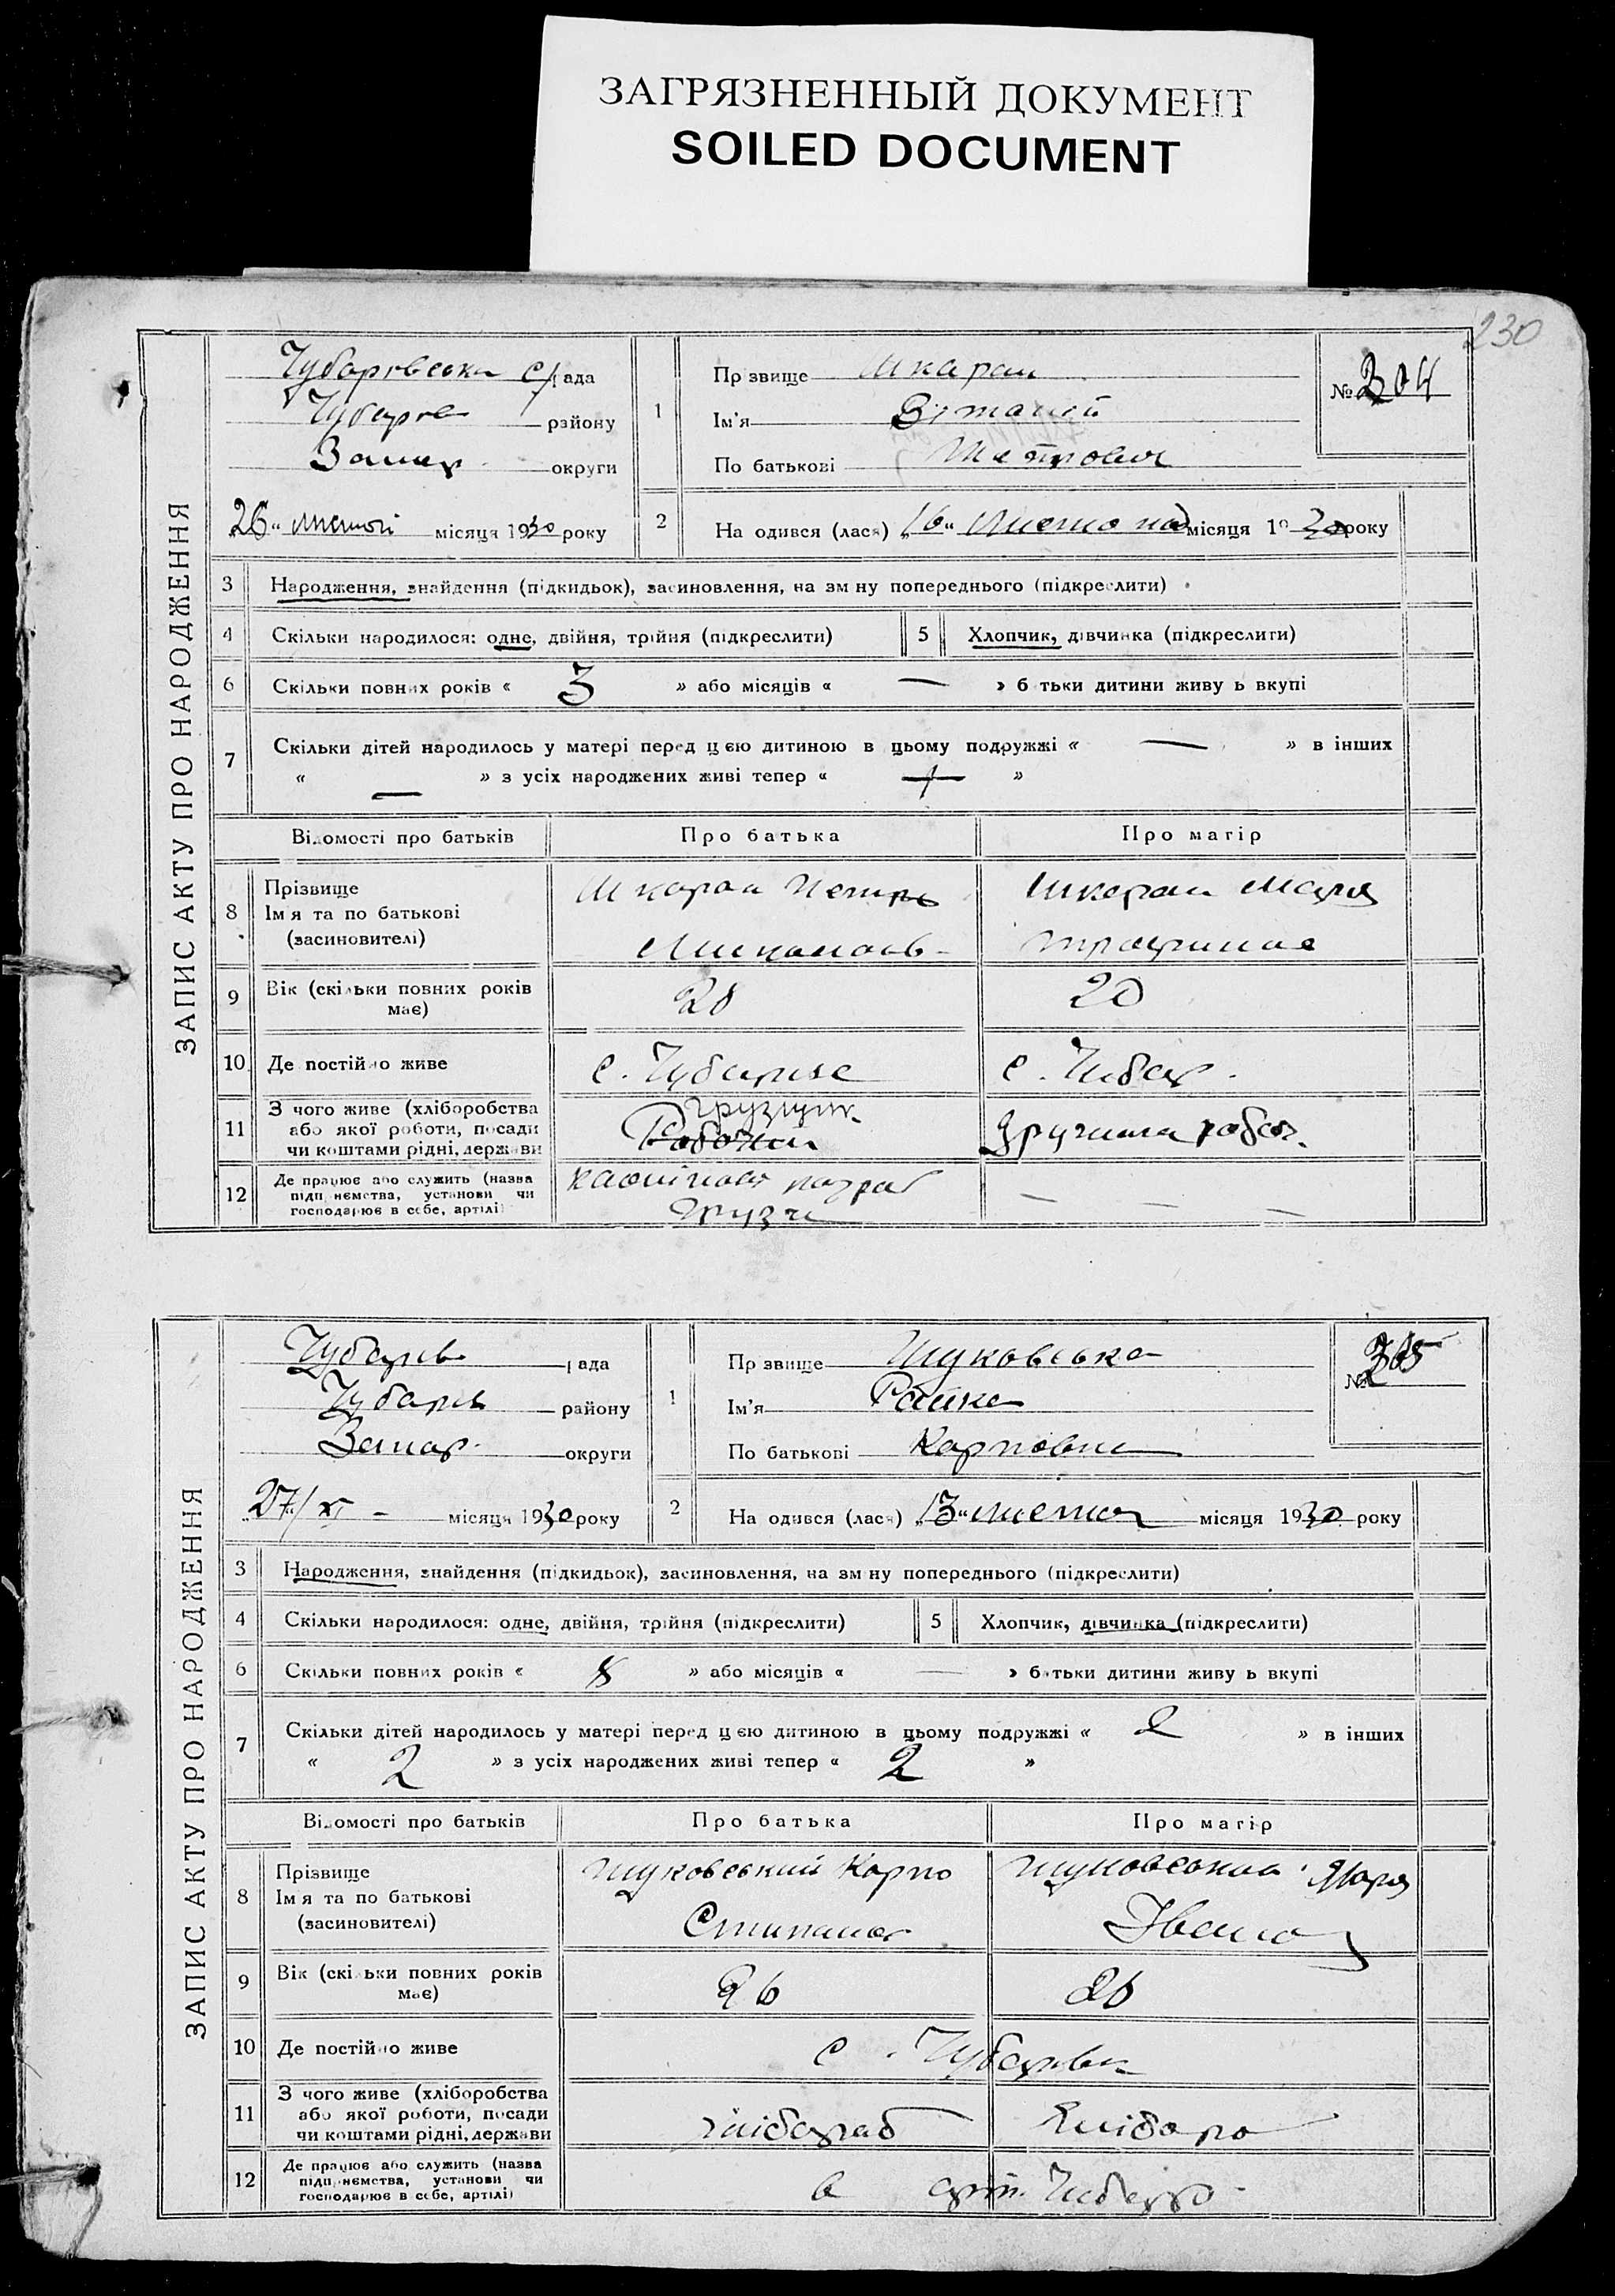 ЗАГРЯЗНЕННЫЙ ДОКУМЕНТ
SOILED DOCUMENT
230
ЗАПИС АКТУ ПРО НАРОДЖЕННЯ
Чубарівська с/рада
Чубарів району
Запор. округи
"26" листоп місяця 1930 року
1 Пр звище Шкарап
Ім'я Віталій
По батькові Петрович
№ 304
2 На одився (лася) "16" Листопад місяця 1930 року
3 Народження, знайдення (підкидьок), засиновлення, на зм ну попереднього (підкреслити)
4 Скільки народилося: одне, двійня, трійня (підкреслити) 5 Хлопчик, дівчинка (підкреслити)
6 Скільки повних років « 3 » або місяців « — » б тьки дитини живу ь вкупі
7 Скільки дітей народилось у матері перед цією дитиною в цьому подружжі « — » в інших
« — » з усіх народжених живі тепер « »
Відомості про батьків Про батька Про матір
8 Прізвище
Ім я та по батькові
(засиновителі)
Шкарап Петро
Шкарап Марія
9 Вік (скільки повних років
має)
28 20
10 Де постійно живе с. Чубарівка с. Чубар.
11 З чого живе (хліборобства
або якої роботи, посади
чи коштами рідні, держави
грузчик
Робочий
12 Де працює або служить (назва
підп иємства, установи чи
господарює в себе, артілі)
— — —
ЗАПИС АКТУ ПРО НАРОДЖЕННЯ
Чубарів рада
Чубарів району
Запор. округи
"27"/XI - місяця 1930 року
1 Пр звище Жуковська
Ім'я Раїка
По батькові Карповна
№ 305
2 На одився (лася) "13" листоп місяця 1930 року
3 Народження, знайдення (підкидьок), засиновлення, на зм ну попереднього (підкреслити)
4 Скільки народилося: одне, двійня, трійня (підкреслити) 5 Хлопчик, дівчинка (підкреслити)
6 Скільки повних років « 8 » або місяців « — » батьки дитини живу ь вкупі
7 Скільки дітей народилось у матері перед цією дитиною в цьому подружжі « 2 » в інших
« 2 » з усіх народжених живі тепер « 2 »
Відомості про батьків Про батька Про матір
8 Прізвище
Ім я та по батькові
(засиновителі)
Жуковський Карпо
Степанов
Івано
9 Вік (скільки повних років
має)
26 26
10 Де постійно живе с. Чубарівка
11 З чого живе (хліборобства
або якої роботи, посади
чи коштами рідні, держави
хлібороб хліборо
12 Де працює або служить (назва
підп иємства, установи чи
господарює в себе, артілі)
в арт.